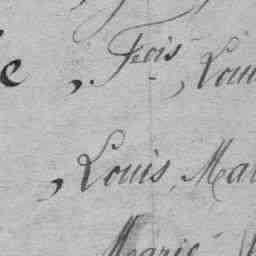 e, Fcois, Loui
, Louis, Mar
Marie